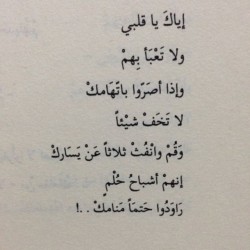 إياكَ يا قلبي
ولا تَعْبَأ بِهمْ
وإذا أصَرّوا باتّهامكْ
لا تَخَفْ شيْئاً
وَقُمْ وانْفُثْ ثلاثاً عَنْ يَسَاركْ
إنهمْ أشباحُ حُلْمٍ
رَاوَدُوا حَتمَاً مَنامكْ . .!